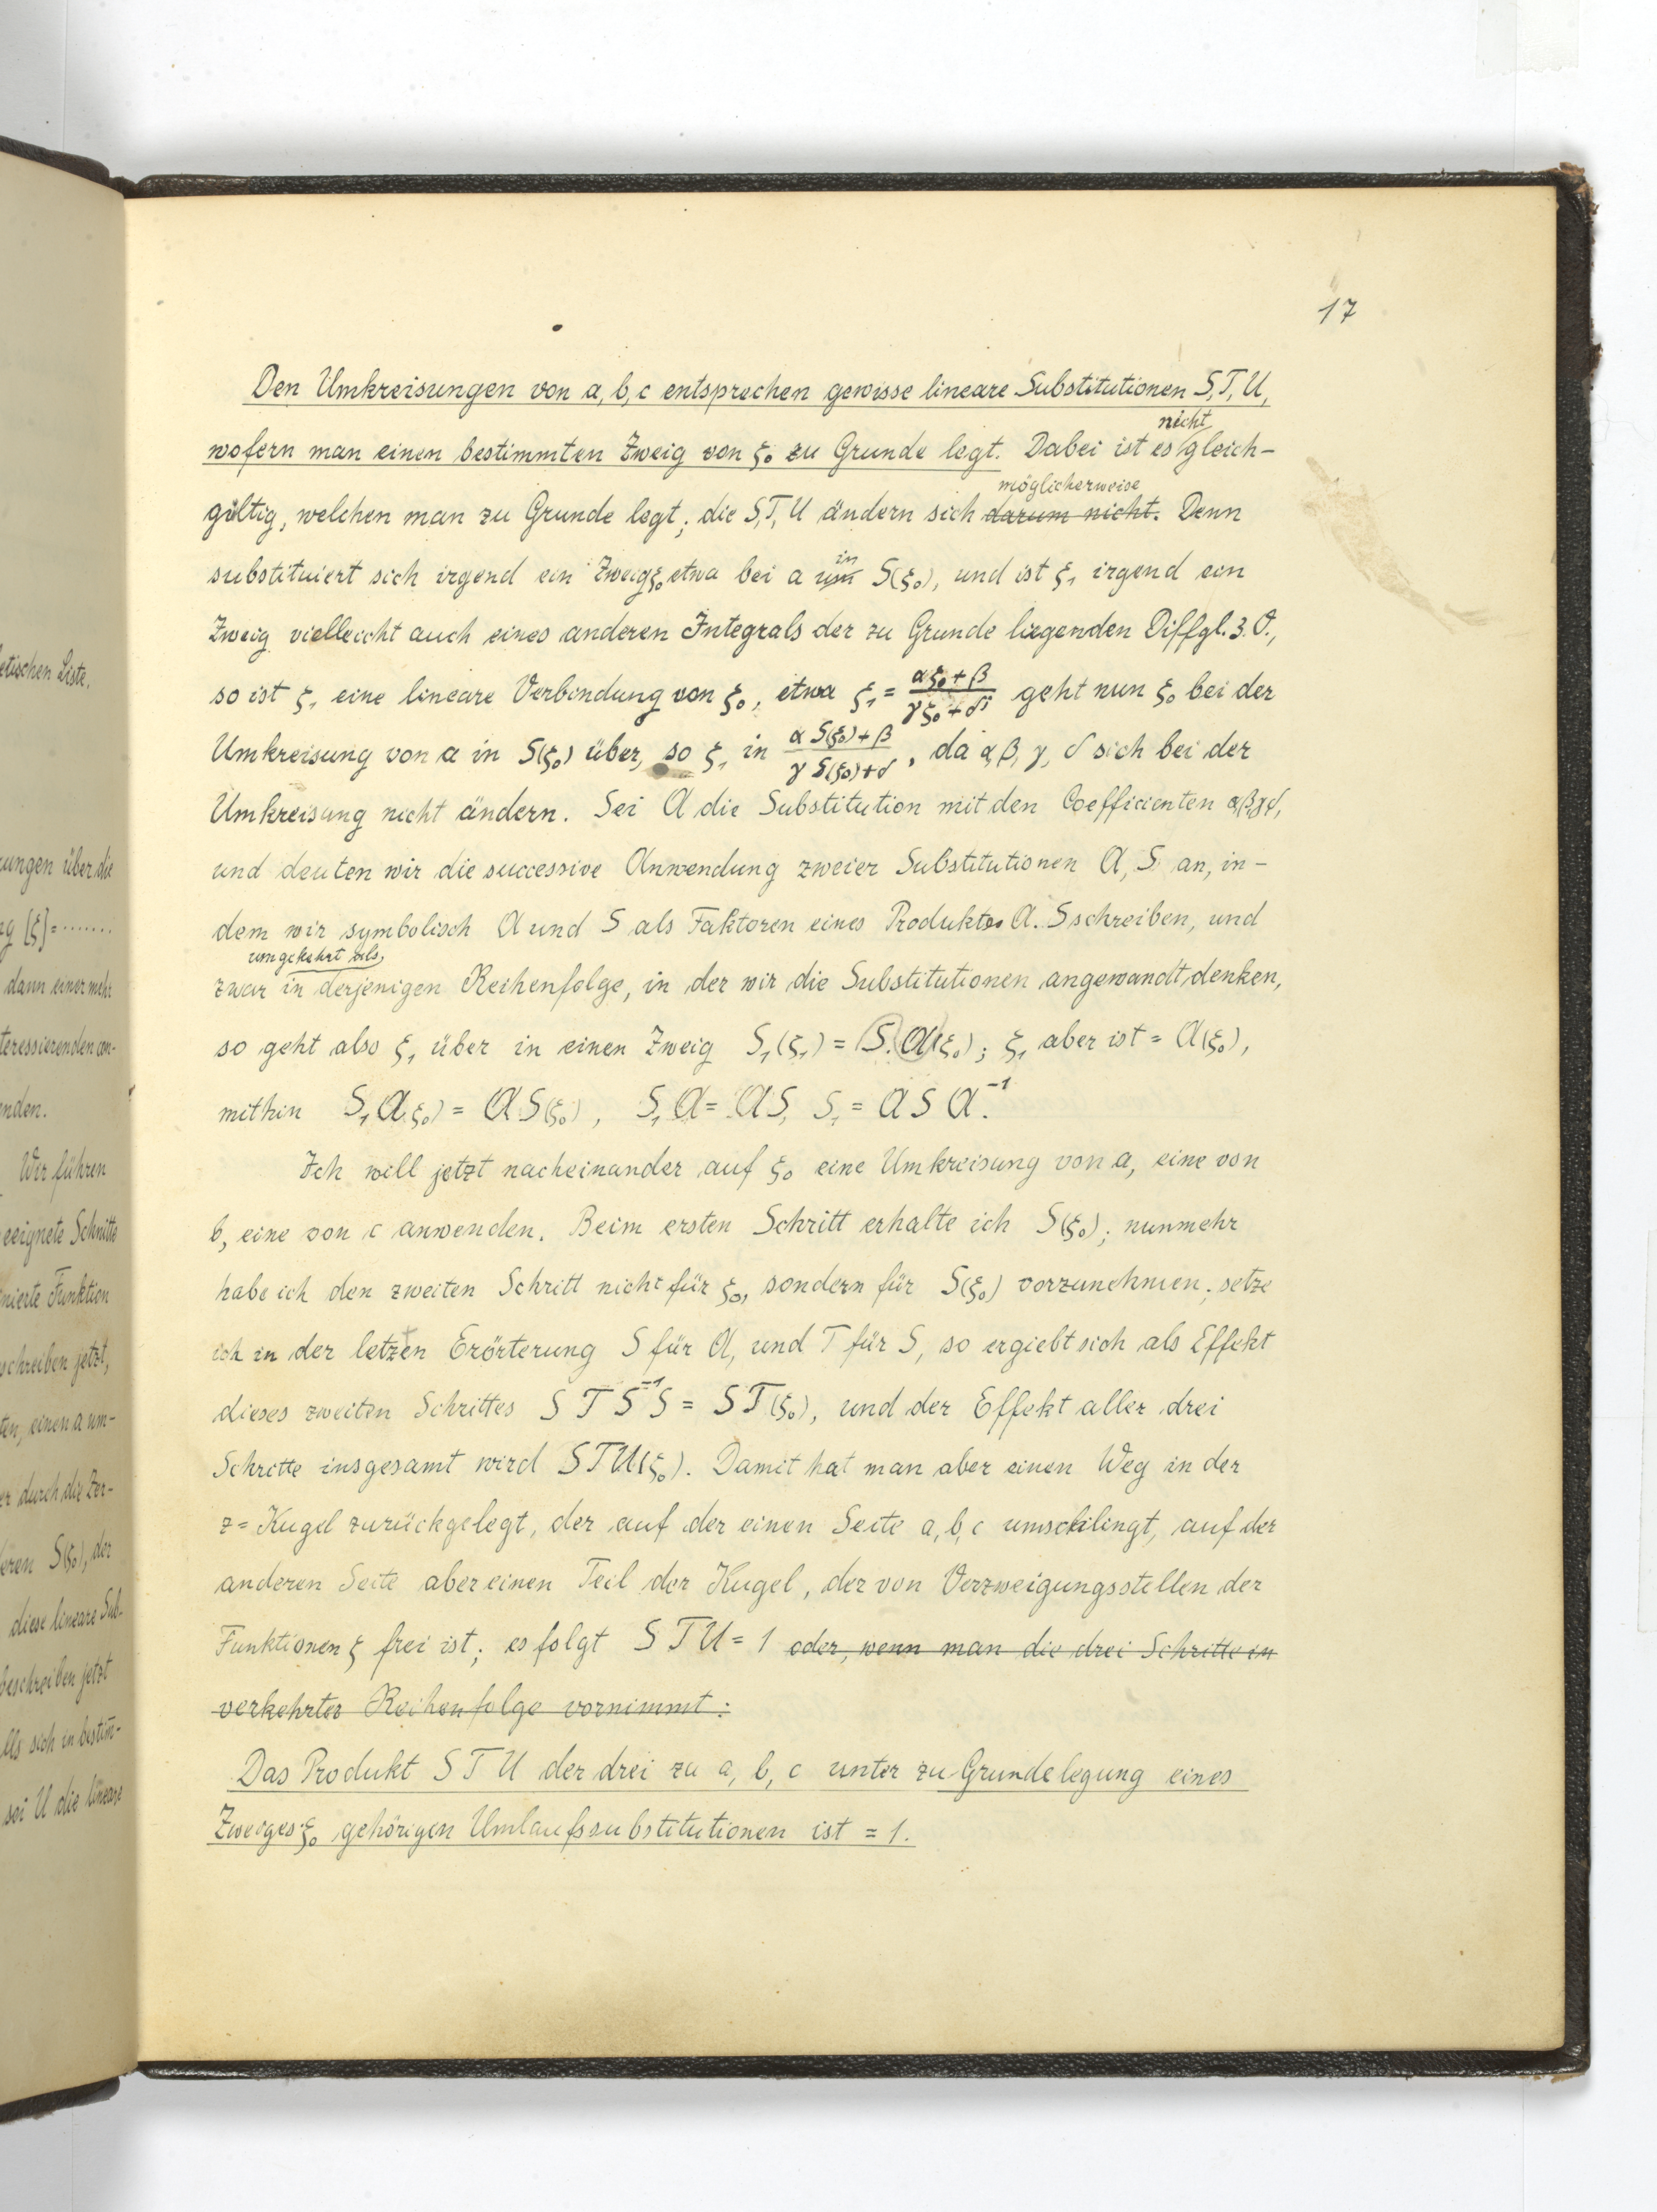 17
Den Umkreisungen von a, b, c entsprechen gewisse lineare Substitutionen S, T, U,
nicht
wofern man einen bestimmten Zweig von ξ₀ zu Grunde legt. Dabei ist es gleich-
möglicherweise
gültig, welchen man zu Grunde legt; die S, T, U ändern sich darum nicht. Denn
in
substituiert sich irgend ein Zweig ξ₀ etwa bei a um S(ξ₀), und ist ξ₁ irgend ein
Zweig vielleicht auch eines anderen Integrals der zu Grunde liegenden Diffgl. 3. O.,
so ist ξ₁ eine lineare Verbindung von ξ₀, etwa ξ₁ = (αξ₀+β)/(γξ₀+δ) geht nun ξ₀ bei der
Umkreisung von a in S(ξ₀) über, so ξ₁ in (α S(ξ₀)+β)/(γ S(ξ₀)+δ), da α, β, γ, δ sich bei der
Umkreisung nicht ändern. Sei A die Substitution mit den Coefficienten α, β, γ, δ,
und deuten wir die successive Anwendung zweier Substitutionen A, S an, in-
dem wir symbolisch A und S als Faktoren eines Produktes A. S schreiben, und
umgekehrt als
zwar in derjenigen Reihenfolge, in der wir die Substitutionen angewandt denken,
so geht also ξ₁ über in einen Zweig S₁(ξ₁) = S. A(ξ₀); ξ₁ aber ist = A(ξ₀),
mithin S₁A(ξ₀) = A S(ξ₀), S₁A = AS, S₁ = A S A⁻¹.
Ich will jetzt nacheinander auf ξ₀ eine Umkreisung von a, eine von
b, eine von c anwenden. Beim ersten Schritt erhalte ich S(ξ₀); nunmehr
habe ich den zweiten Schritt nicht für ξ₀, sondern für S(ξ₀) vorzunehmen; setze
ich in der letzten Erörterung S für A, und T für S, so ergiebt sich als Effekt
dieses zweiten Schrittes S T S⁻¹ S = S T(ξ₀), und der Effekt aller drei
Schritte insgesamt wird S T U(ξ₀). Damit hat man aber einen Weg in der
z=Kugel zurückgelegt, der auf der einen Seite a, b, c umschlingt, auf der
anderen Seite aber einen Teil der Kugel, der von Verzweigungsstellen der
Funktionen ξ frei ist; es folgt S T U = 1 oder, wenn man die drei Schritte in
verkehrter Reihenfolge vornimmt:
Das Produkt S T U der drei zu a, b, c unter zu Grundelegung eines
Zweiges ξ₀ gehörigen Umlaufssubstitutionen ist = 1.
etischen Liste.
ungen über die
[ξ]=.......
dann einer mehr
nden.
Wir führen
eeignete Schnitte
nierte Funktion
schreiben jetzt,
ten, einen a um-
er durch die Zer-
eren S(ξ₀), der
diese lineare Sub-
beschreiben jetzt
sei U die lineare